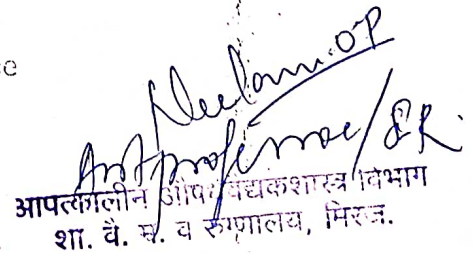 Neelam.OP
Ast professor/SR.
आपत्कालीन औषधवैद्यकशास्त्र विभाग
शा. वै. म. व रुग्णालय, मिरज.